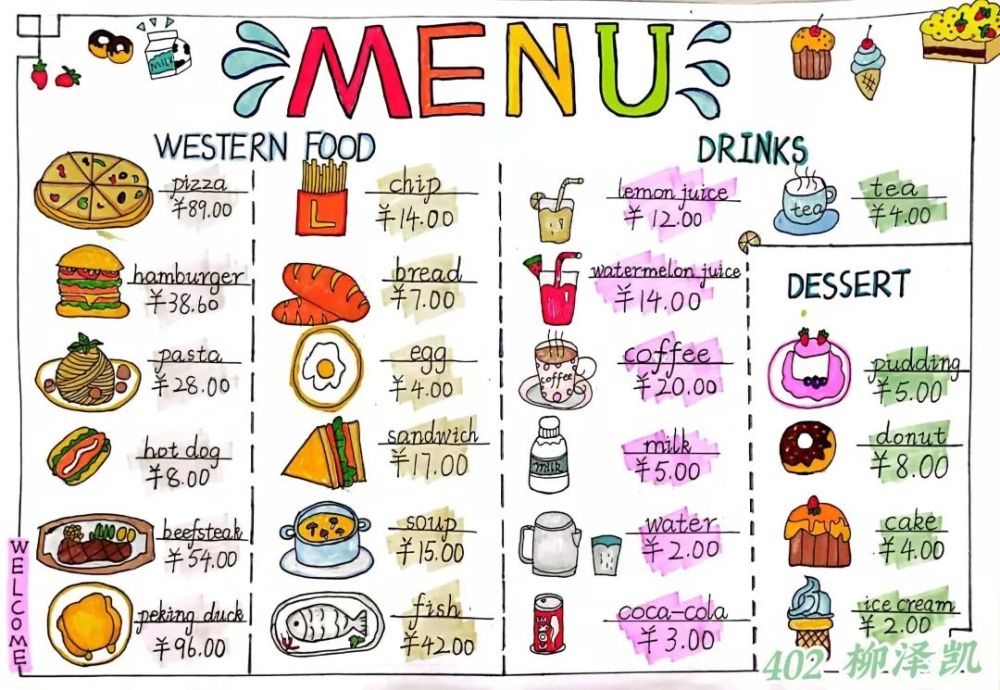 MENU
MILK
WESTERN FOOD
pizza
¥89.00
hamburger
¥38.60
pasta
¥28.00
hot dog
¥8.00
beefsteak
¥54.00
peking duck
¥96.00
L
chip
¥14.00
bread
¥7.00
egg
¥4.00
sandwich
¥17.00
soup
¥15.00
fish
¥42.00
DRINKS
lemon juice
¥12.00
watermelon juice
¥14.00
coffee
coffee
¥20.00
milk
milk
¥5.00
water
¥2.00
coca-cola
¥3.00
tea
tea
¥4.00
DESSERT
pudding
¥5.00
donut
¥8.00
cake
¥4.00
ice cream
¥2.00
WELCOME
402 柳泽凯